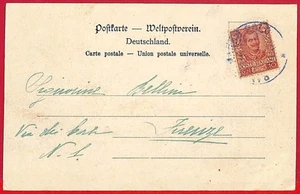 Postkarte — Weltpostverein.
Deutschland.
Carte postale – Union postale universelle.
Signorine Bellini
Via dei
Firenze
N. 6.